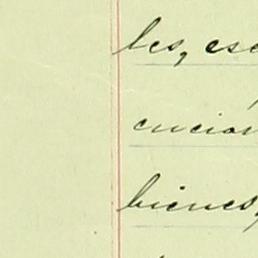 les, esc
cucion
bienes,